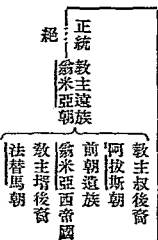 正統
教主遠族
翁米亞朝
絕
教主叔後裔
阿拔斯朝
前朝遺族
翁米亞西帝國
教主壻後裔
法替馬朝